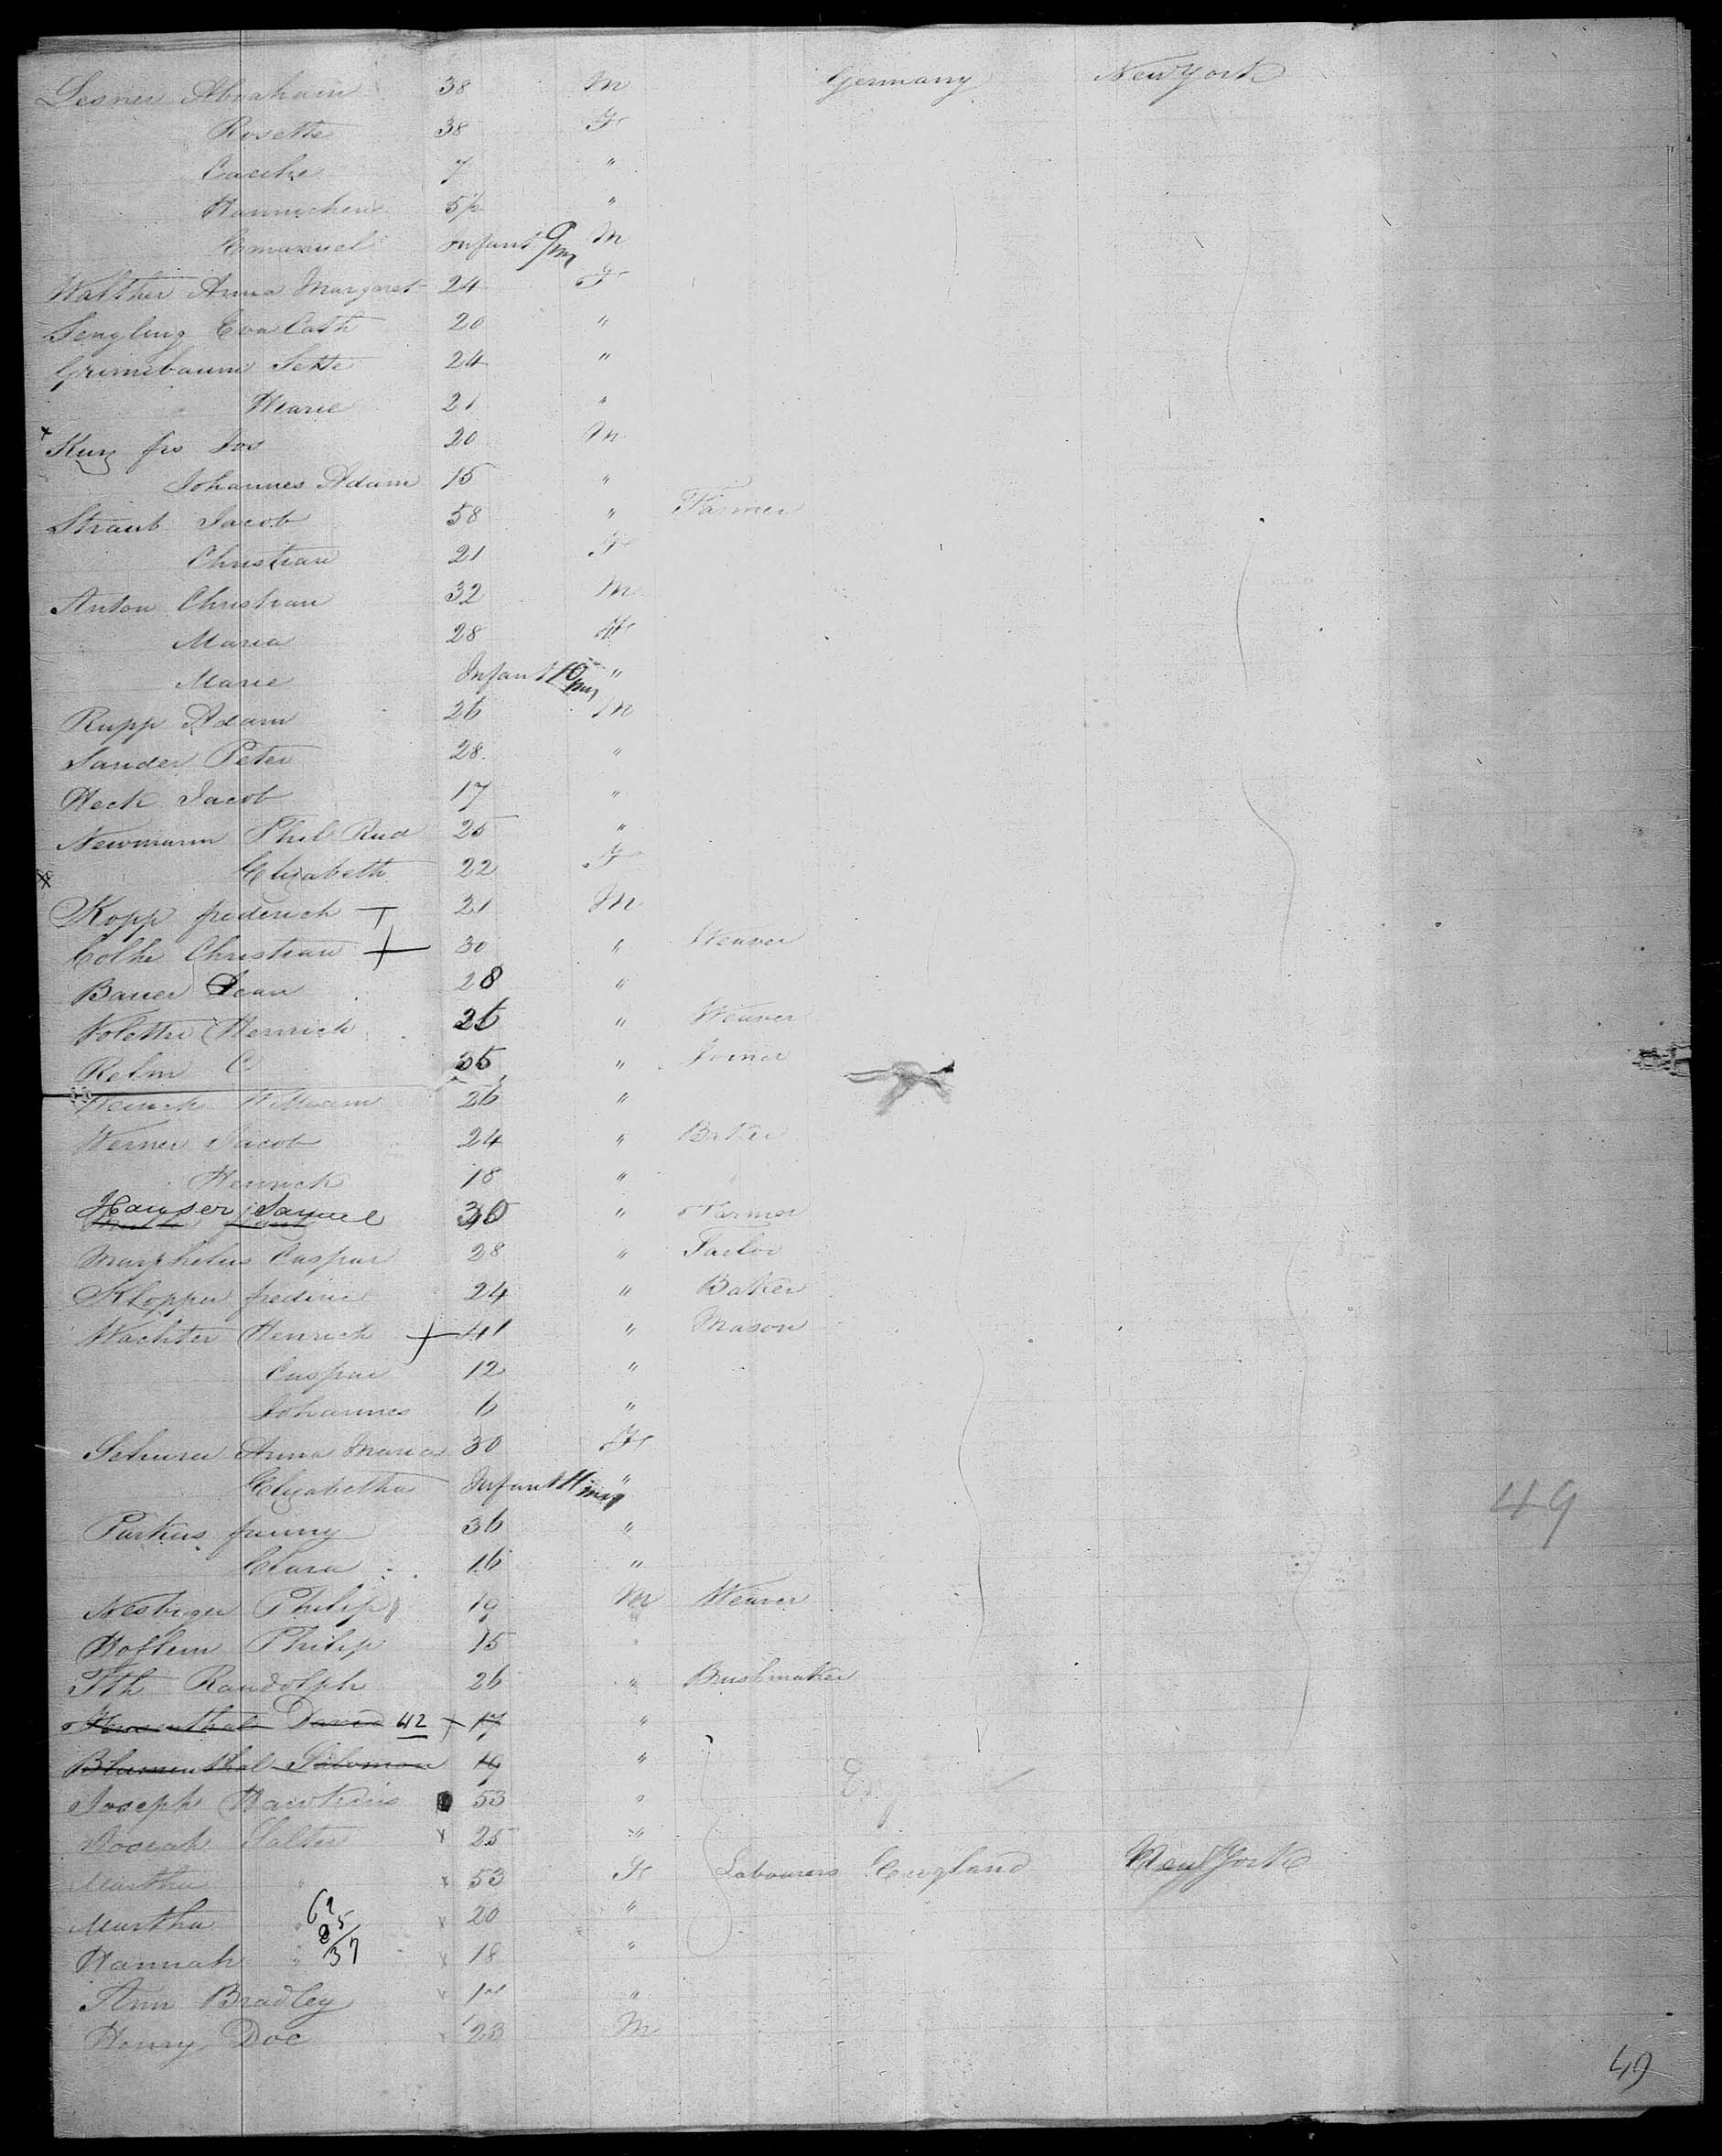 Lesner Abraham 38 M Germany New York
Rosette 38 F
Caecilie 7 "
Hannchen 5½ "
Emanuel Infant 9/m M
Walther Anna Margaret 24 F
Sengling Eva Cath 20 "
Grunebaum Sette 24 "
Marie 21 "
Kunz frs Jos 20 M
Johannes Adam 15 "
Straub Jacob 58 " Farmer
Christian 21 F
Anton Christian 32 M
Maria 28 F
Marie Infant 10/m "
Rupp Adam 26 M
Sander Peter 28 "
Heck Jacob 17 "
Newmann Phil Rud 25 "
Elizabeth 22 F
Kopp frederich 21 M
Colhe Christian + 30 " Weaver
Bauer Jean 28 "
Voletter Henrich 26 " Weaver
Relm C 35 " Joiner
William 26 "
Werner Jacob 24 " Baker
Henrich 18 " "
Hauser Samuel 30 " Farmer
Caspar 28 " Tailor
Klopper frederic 24 " Baker
Wachter Henrich + 41 " Mason
Caspar 12 "
Johannes 6 "
Anna Maria 30 F
Elizabetha Infant 11/m "
fanny 36 "
Clara 16 "
Philip 19 M Weaver
Philip 15 "
Fth Randolph 26 " Brushmaker
David 42 + 17 "
Blumenthal Salomon 19 "
Joseph Hawkins 53 "
Salter x 25 "
Martha " x 53 F Labourers England New York
Martha " x 20 "
62
85
37
Hannah " x 18 "
Ann Bradley x "
Henry Doe x 23 M
49
49